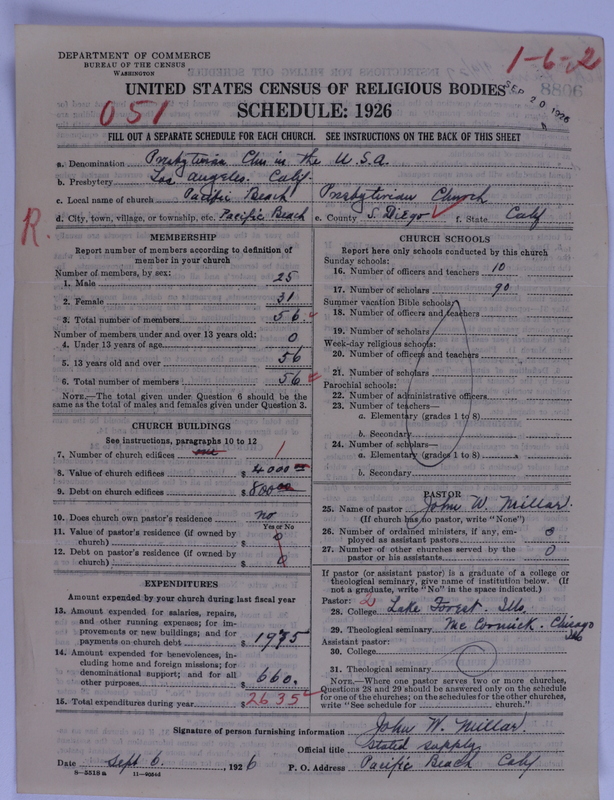 DEPARTMENT OF COMMERCE
BUREAU OF THE CENSUS
WASHINGTON
1-6-2
UNITED STATES CENSUS OF RELIGIOUS BODIES
SEP 20 1926
051
SCHEDULE: 1926
FILL OUT A SEPARATE SCHEDULE FOR EACH CHURCH. SEE INSTRUCTIONS ON THE BACK OF THIS SHEET
a. Denomination Presbyterian Chu in the U.S.A.
b. Presbytery Los Angeles. Calif.
c. Local name of church Pacific Beach Presbyterian Church
d. City, town, village, or township, etc. Pacific Beach e. County S. Diego f. State Calif
R.
MEMBERSHIP
Report number of members according to definition of
member in your church
Number of members, by sex:
1. Male 25
2. Female 31
3. Total number of members 56
Number of members under and over 13 years old:
4. Under 13 years of age 0
5. 13 years old and over 56
6. Total number of members 56
NOTE.—The total given under Question 6 should be
the same as the total of males and females given under Question 3.
CHURCH BUILDINGS
See instructions, paragraphs 10 to 12
7. Number of church edifices one 1
8. Value of church edifices $ 4000 00
9. Debt on church edifices $ 800 00
10. Does church own pastor's residence no
Yes or No
11. Value of pastor's residence (if owned by
church) $ 0
12. Debt on pastor's residence (if owned by
church) $ 0
EXPENDITURES
Amount expended by your church during last fiscal year
13. Amount expended for salaries, repairs,
and other running expenses; for im-
provements or new buildings; and for
payments on church debt $ 1975
14. Amount expended for benevolences, in-
cluding home and foreign missions; for
denominational support; and for all
other purposes $ 660.
15. Total expenditures during year $ 2635
CHURCH SCHOOLS
Report here only schools conducted by this church
Sunday schools:
16. Number of officers and teachers 10
17. Number of scholars 90
Summer vacation Bible schools:
18. Number of officers and teachers
19. Number of scholars
Week-day religious schools:
20. Number of officers and teachers
21. Number of scholars
Parochial schools:
22. Number of administrative officers
23. Number of teachers—
a. Elementary (grades 1 to 8)
b. Secondary
24. Number of scholars—
a. Elementary (grades 1 to 8)
b. Secondary
PASTOR
25. Name of pastor John W. Millar.
(If church has no pastor, write "None")
26. Number of ordained ministers, if any, em-
ployed as assistant pastors 0
27. Number of other churches served by the
pastor or his assistants 0
If pastor (or assistant pastor) is a graduate of a college or
theological seminary, give name of institution below. (If
not a graduate, write "No" in the space indicated.)
Pastor: 2
28. College Lake Forest. Ills.
29. Theological seminary McCormick. Chicago
Ills
Assistant pastor:
30. College
31. Theological seminary
NOTE.—Where one pastor serves two or more churches,
Questions 28 and 29 should be answered only on the schedule
for one of the churches; on the schedules for the other churches,
write "See schedule for church."
Signature of person furnishing information John W. Millar.
Official title stated supply
Date Sept 6. , 1926 P. O. Address Pacific Beach Calif
8-5518 a 11-9054d